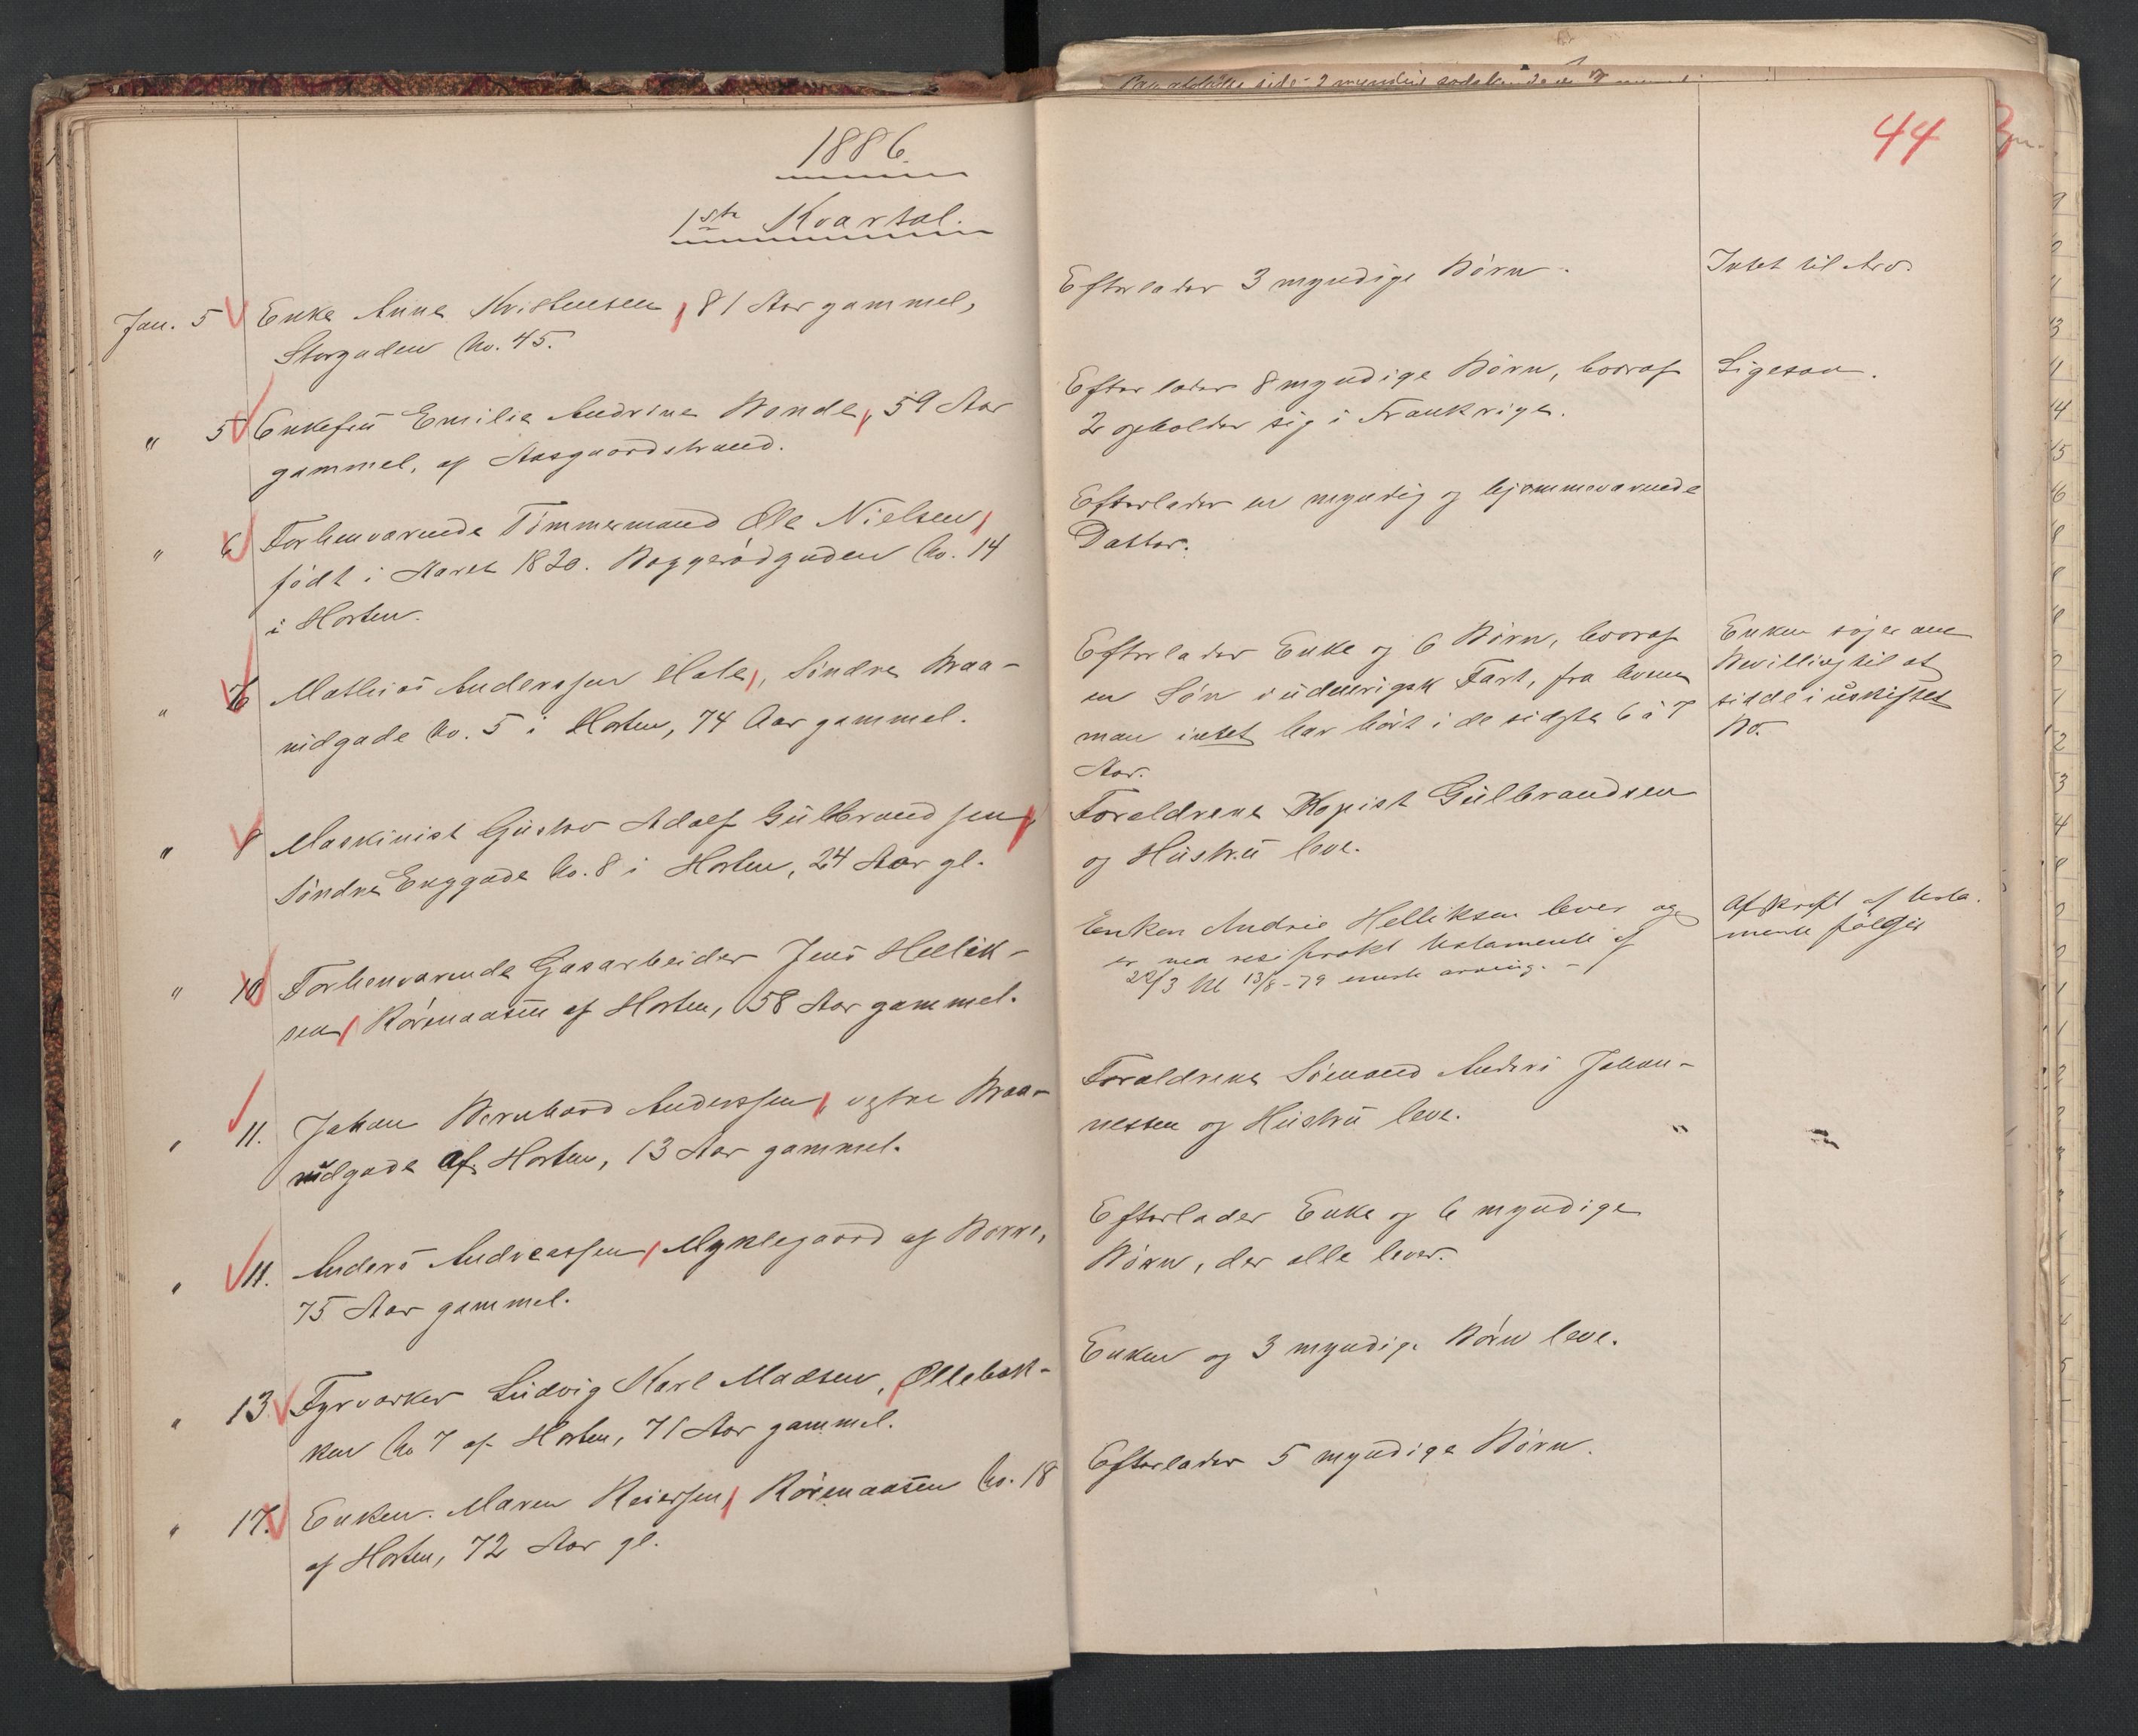 1886.
1ste Kvartal.
Jan. 5 Enke Anne Kristensen, 81 Aar gammel,
Storgaden No. 45.
" 5 Enkefru Emilie Andrine Bonde, 59 Aar
gammel, af Aasgaardstrand.
" 6 Forhenværende Tømmermand Ole Nielsen,
født i Aaret 1820. Baggerødgaden No. 14
i Horten.
" Mathias Anderssen Hals, Søndre Braa-
rudgade No. 5 i Horten, 74 Aar gammel.
" 8 Maskinist Gustav Adolf Gulbrandsen,
Søndre Enggade No. 8 i Horten, 24 Aar gl.
" 10 Forhenværende Gasarbeider Jens Hellik-
sen, Rørmaasen af Horten, 58 Aar gammel.
" 11. Johan Bernhard Anderssen, vestre Braa-
rudgade af Horten, 13 Aar gammel.
" 11. Anders Andreassen, Myklegaard af Borre,
75 Aar gammel.
" 13. Fyrværker Ludvig Karl Madsen, Ollebak-
ken No 7 af Horten, 71 Aar gammel.
" 17. Enken Maren Reiersen, Rørmaasen No. 18
af Horten, 72 Aar gl.
44
Efterlader 3 myndige Børn.
Intet til Arv.
Efterlader 8 myndige Børn, hvoraf
2 opholder sig i Frankrige.
Ligesaa.
Efterlader en myndig og hjemmeværende
Datter.
Efterlader Enke og 6 Børn, hvoraf
en Søn i udenrigsk Fart, fra hvem
man intet har hørt i de sidste 6 à 7
Aar.
Enken søger om
Bevilling til at
sidde i uskiftet
Bo.
Forældrene Kopist Gulbrandsen
og Hustru leve.
Enken Andrie Helliksen lever og
er ved resiprokt testamente af
22/3 13/8-79 eneste arving. -
Afskrift af testa-
mente følger
Forældrene Sømand Anders Johan-
nessen og Hustru leve.
" "
Efterlader Enke og 6 myndige
Børn, der alle lever.
Enken og 3 myndige Børn leve.
Efterlader 5 myndige Børn.